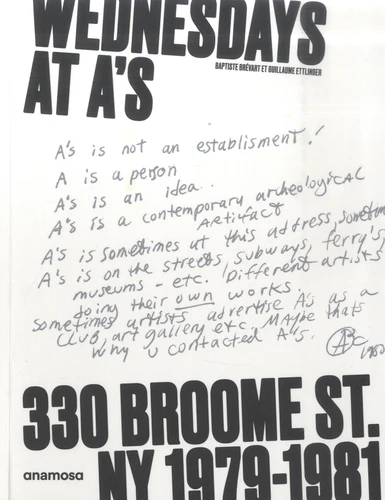 WEDNESDAYS
BAPTISTE BRÉVART ET GUILLAUME ETTLINGER
AT A'S
A's is not an establisment!
A is a person
A's is an idea..
A's is a contemporary archeological
Artifact
A's is sometimes at this address, sometim
A's is on the streets, subways, ferry's,
museums - etc. Different artists
doing their own works.
sometimes artists advertise A's as a
Club, art gallery etc. Maybe thats
why u contacted A's.
330 BROOME ST.
anamosa
NY 1979-1981